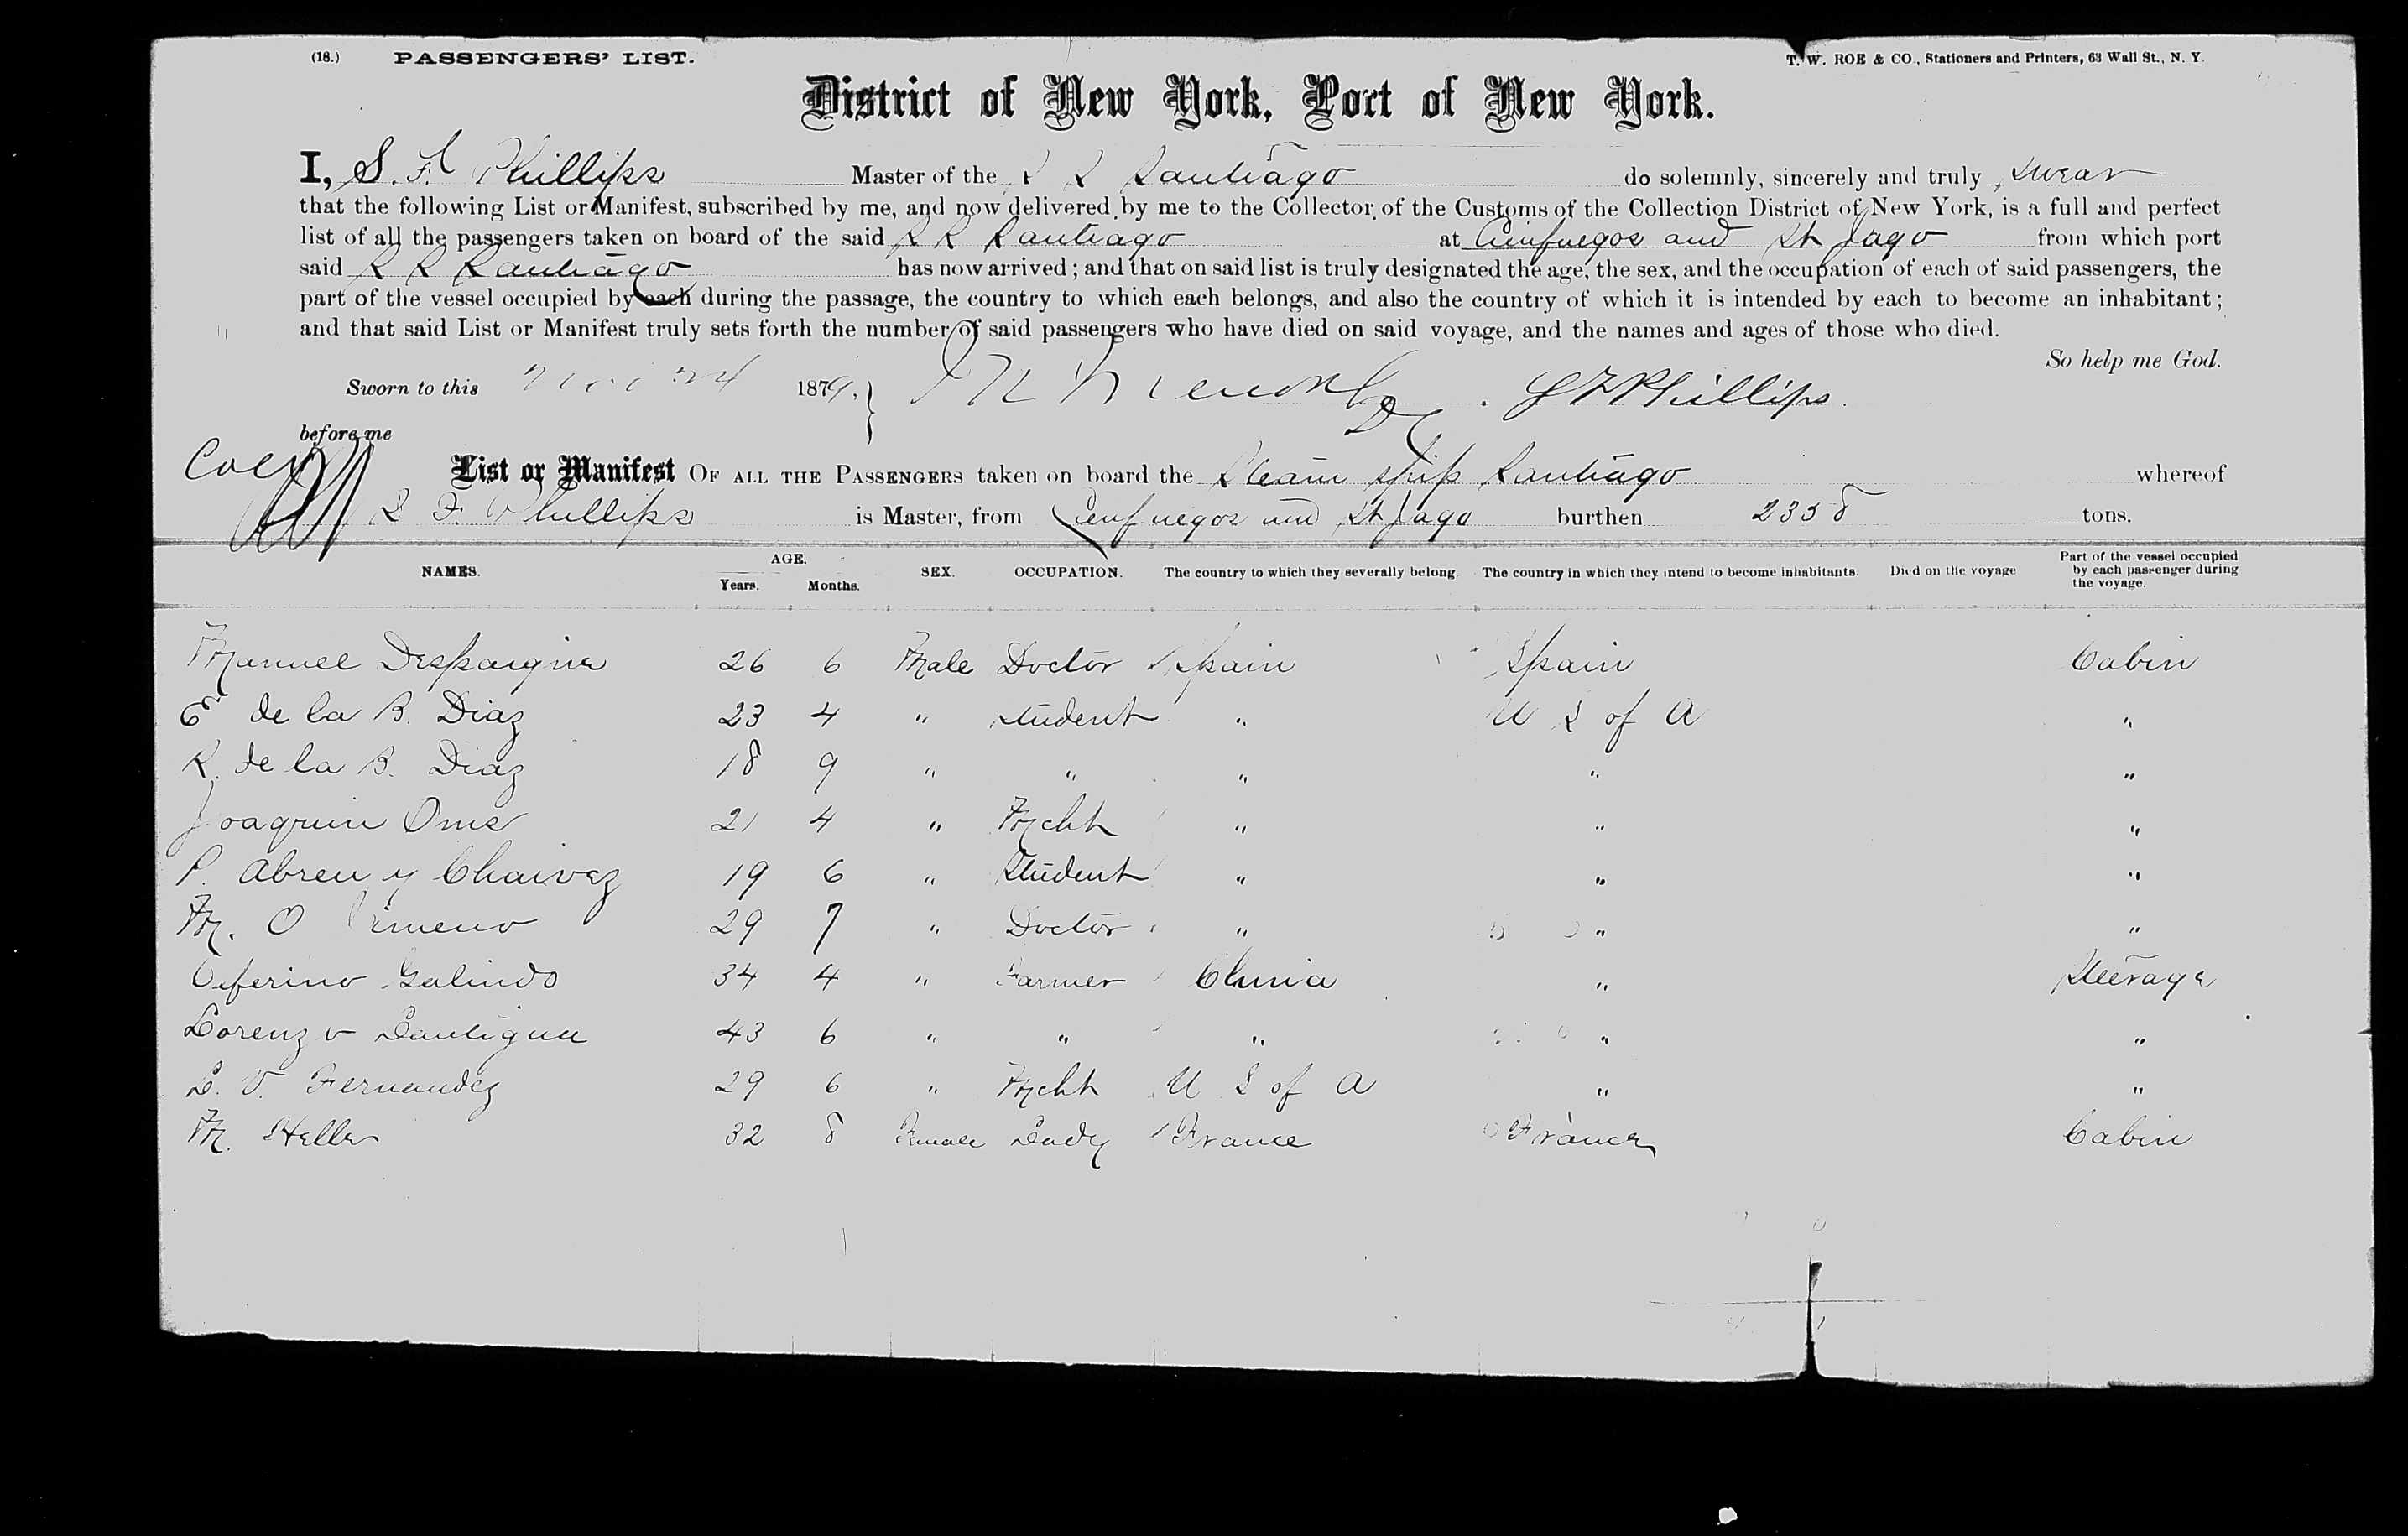 (18.) PASSENGERS' LIST. T. W. ROE & CO., Stationers and Printers, 63 Wall St., N. Y.
District of New York, Port of New York.
I, S. F. Phillips Master of the S S Santiago do solemnly, sincerely and truly swear
that the following List or Manifest, subscribed by me, and now delivered by me to the Collector of the Customs of the Collection District of New York, is a full and perfect
list of all the passengers taken on board of the said S S Santiago at Cienfuegos and St Jago from which port
said S S Santiago has now arrived; and that on said list is truly designated the age, the sex, and the occupation of each of said passengers, the
part of the vessel occupied by each during the passage, the country to which each belongs, and also the country of which it is intended by each to become an inhabitant;
and that said List or Manifest truly sets forth the number of said passengers who have died on said voyage, and the names and ages of those who died.
So help me God.
Sworn to this 24 1879. S F Phillips
before me
List or Manifest OF ALL THE PASSENGERS taken on board the Steam Ship Santiago whereof
S F. Phillips is Master, from Cienfuegos and St Jago burthen 2358 tons.
NAMES. AGE. Years. Months. SEX. OCCUPATION. The country to which they severally belong. The country in which they intend to become inhabitants. Died on the voyage Part of the vessel occupied by each passenger during the voyage.
Manuel Despaigne 26 6 Male Doctor Spain Spain Cabin
E de la B. Diaz 23 4 " Student " U S of A "
R. de la B. Diaz 18 9 " " " " "
Joaquin Oms 21 4 " Mcht " " "
P. Abreu y Chaivez 19 6 " Student " " "
M. O 29 7 " Doctor " " "
Ceferino Galindo 34 4 " Farmer China " Steerage
Lorenzo 43 6 " " " " "
L. V. Fernandez 29 6 " Mcht U S of A " "
M. Heller 32 8 Female Lady France France Cabin